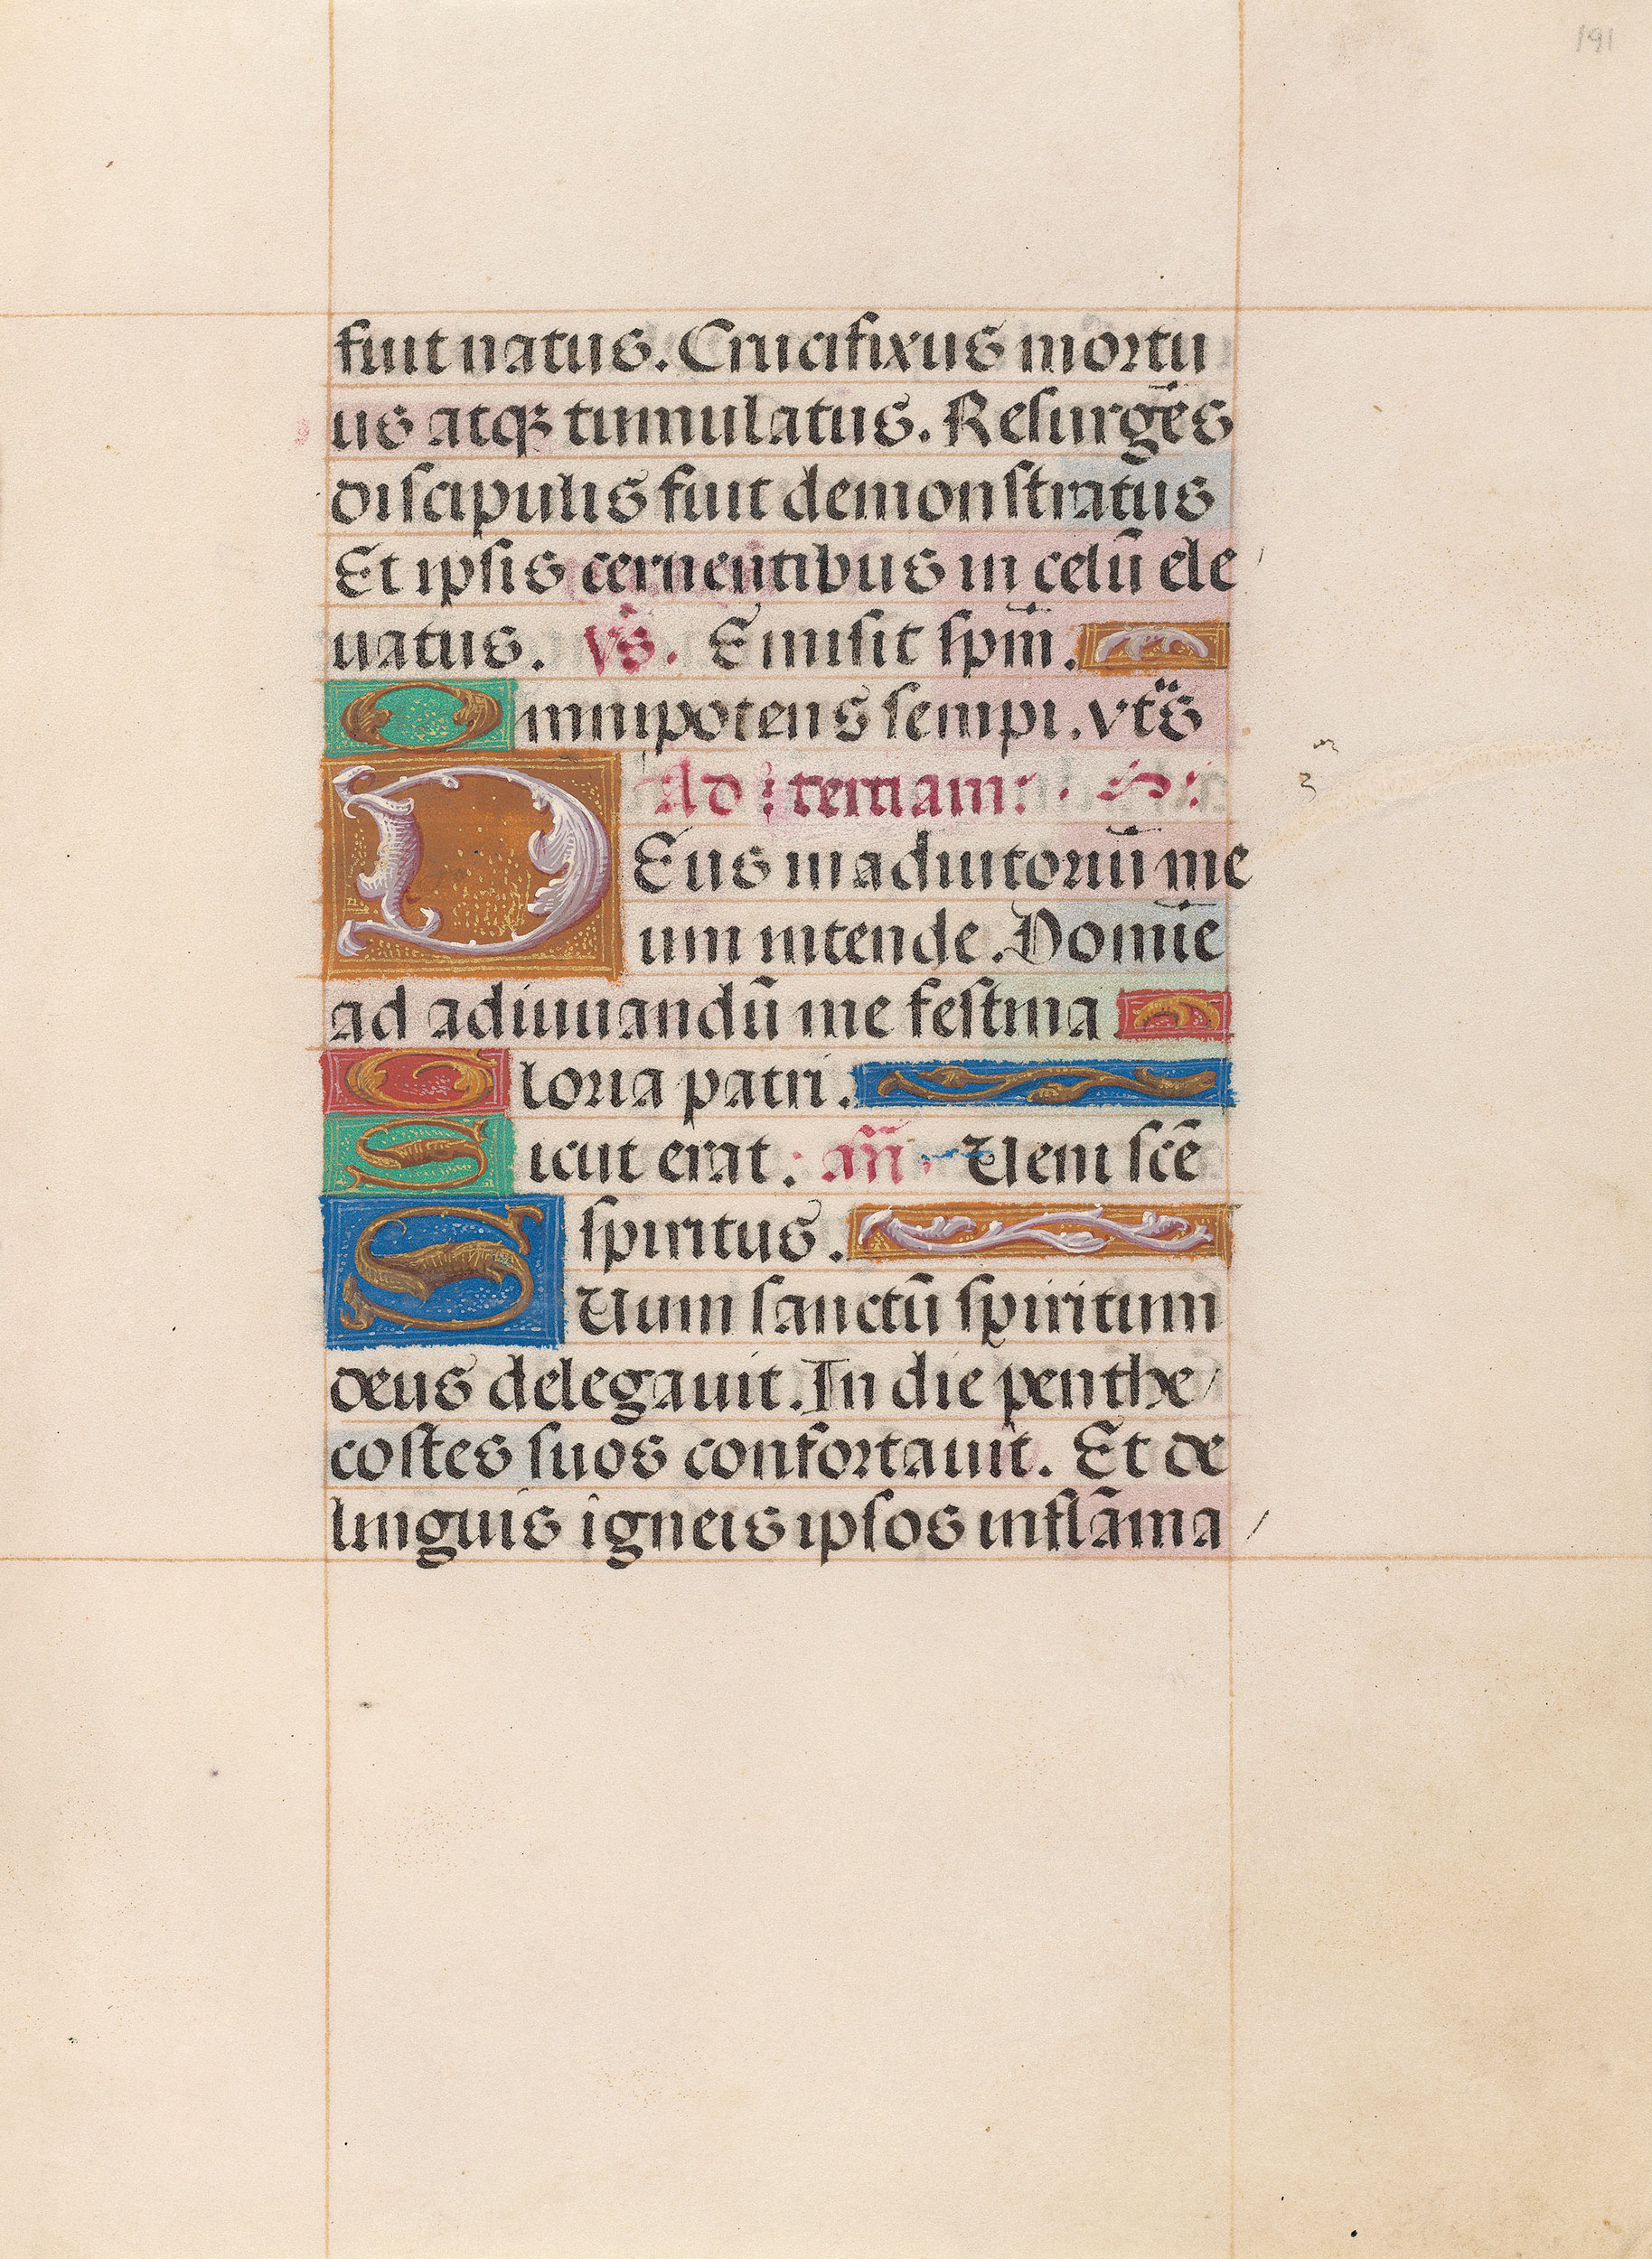 191
fuit natus. Crucifixus mortu
us atqꝫ tumulatus. Resurgēs
discipulis fuit demonstratus
Et ipsis cernentibus in celū ele
uatus. vs̄. Emisit spm̄.
Omnipotens sempi. vts̈
Ad tertiam:
DEus in adiutoriū me
um intende. Domīe
ad adiuuandū me festina
Gloria patri.
Sicut erat. an̄. Ueni scē
spiritus.
SUum sanctū spiritum
deus delegauit. In die penthe
costes suos confortauit. Et de
linguis igneis ipsos inflāma